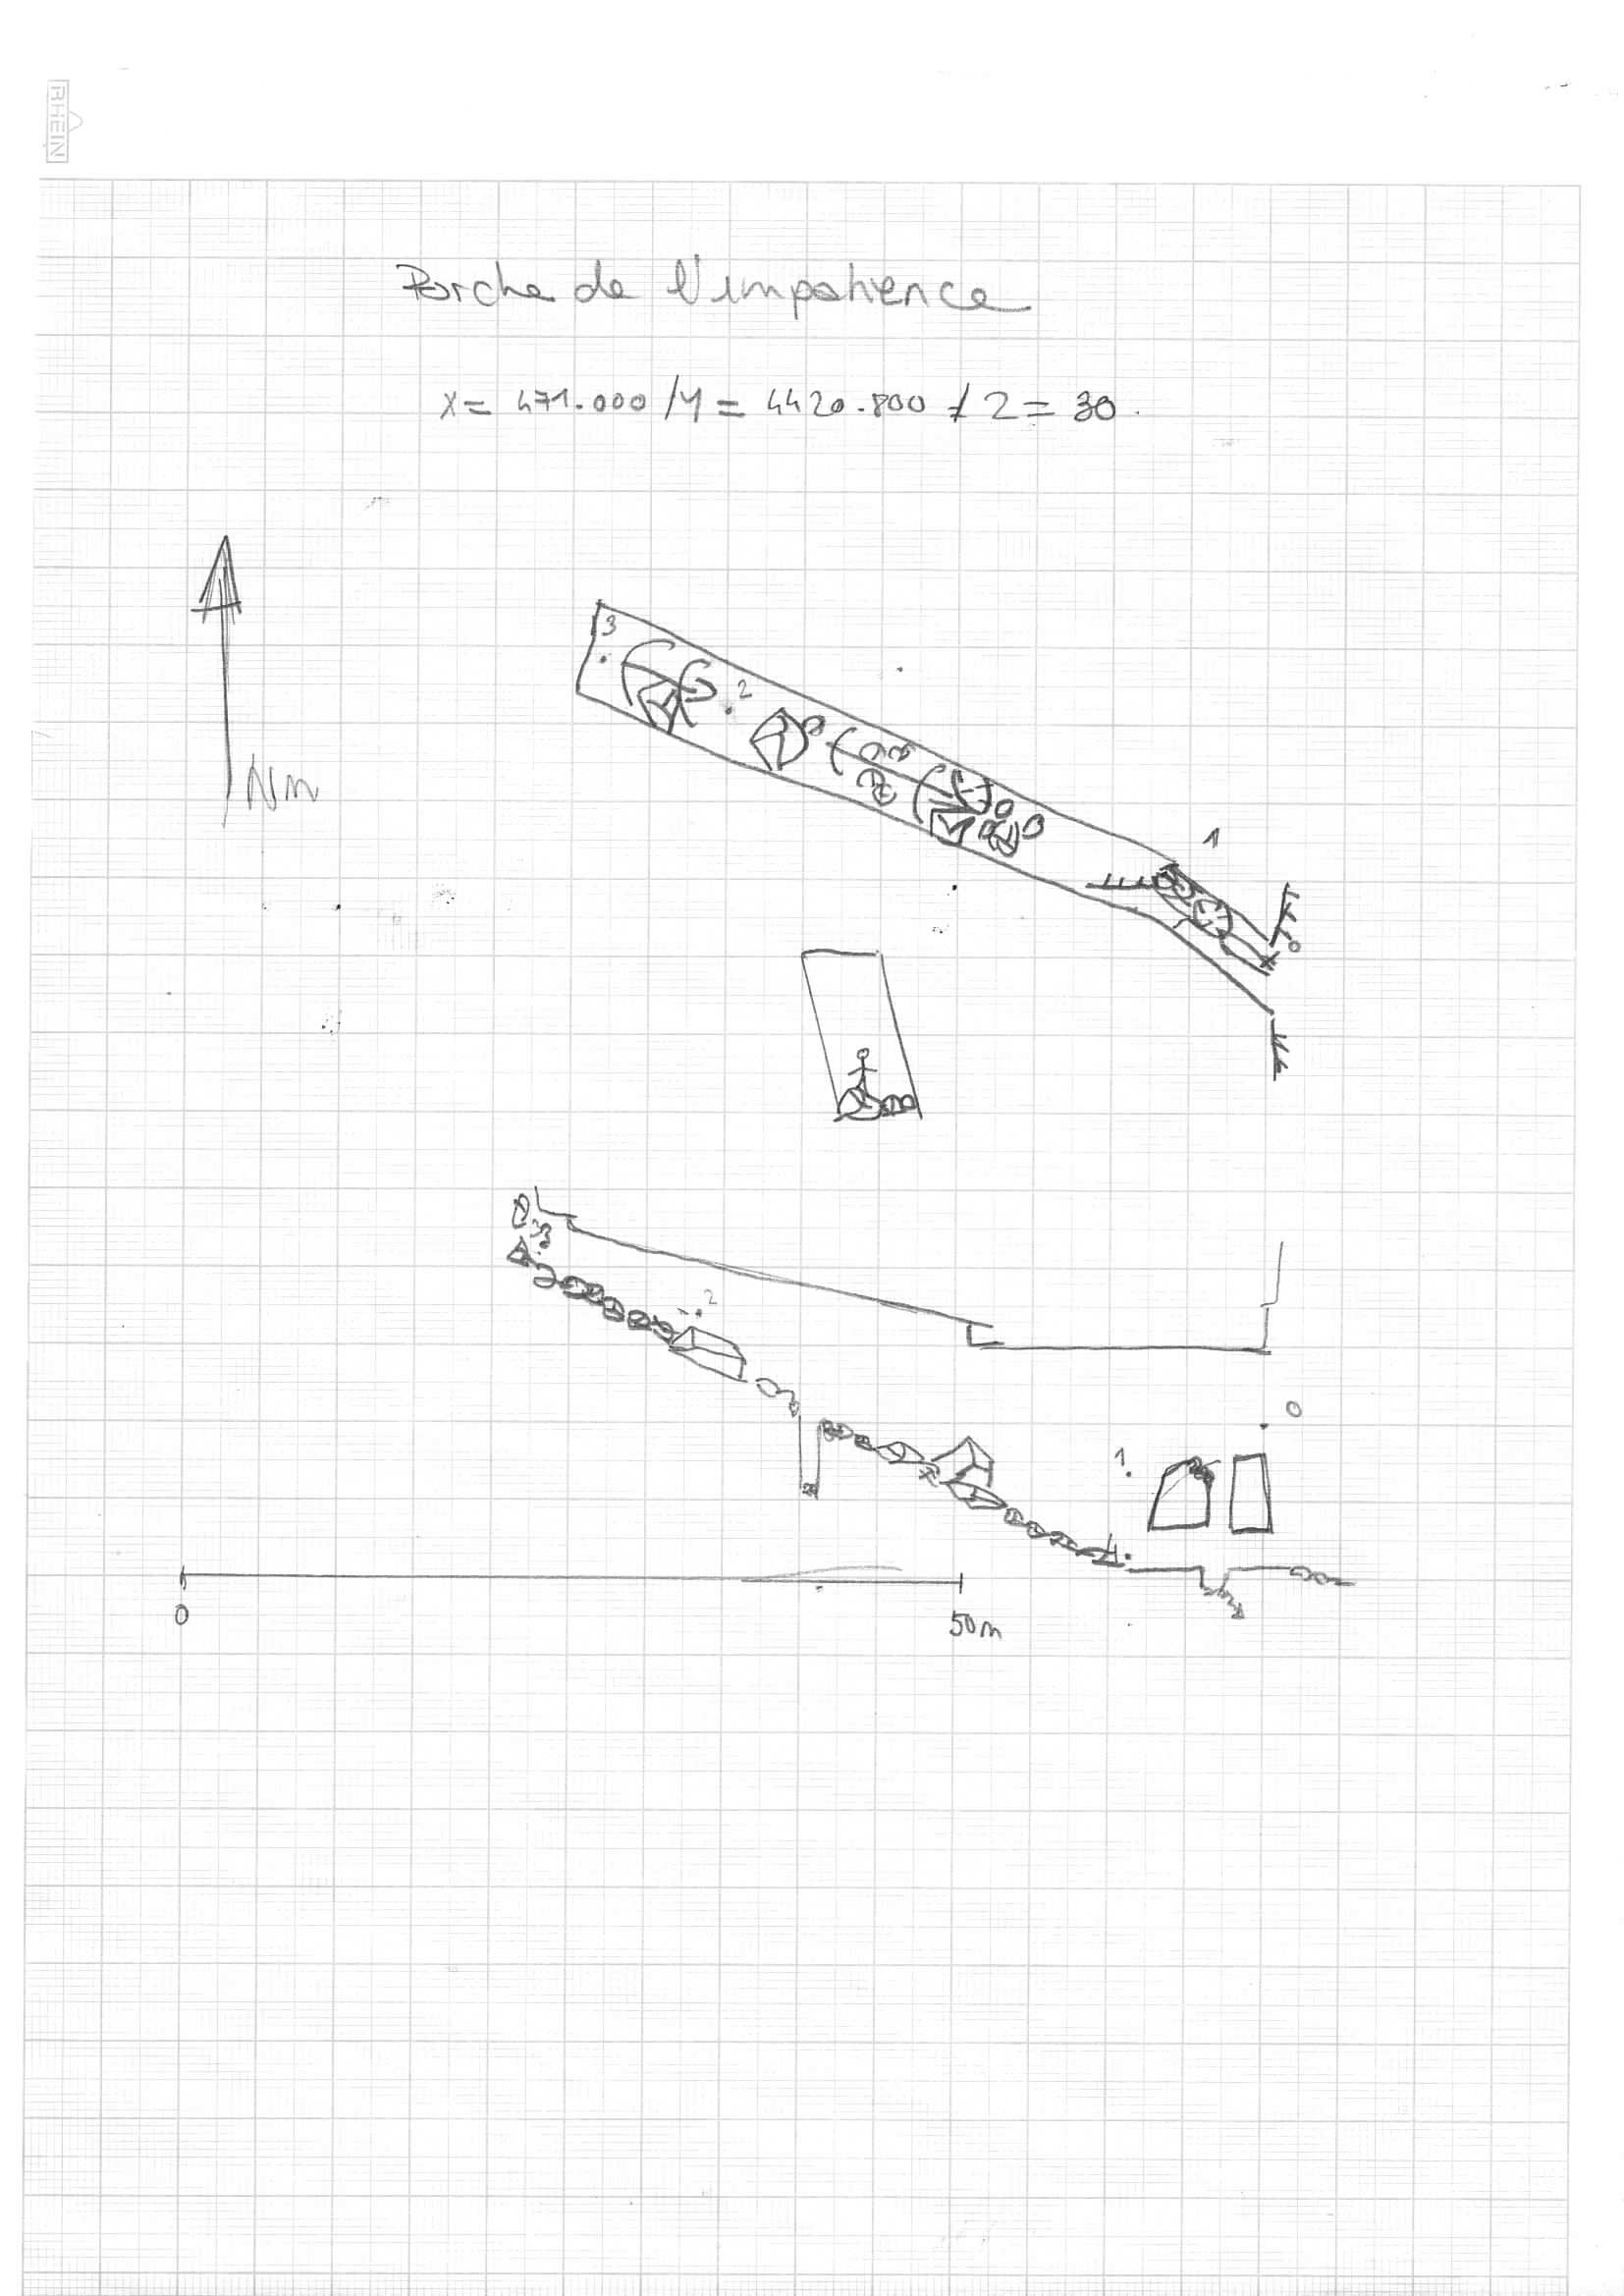 RHEIN
Porche de l'impatience
X= 471.000 / Y= 4420.800 / Z= 30.
3
2
Nm
1
0
3
2
0
1.
0
50m